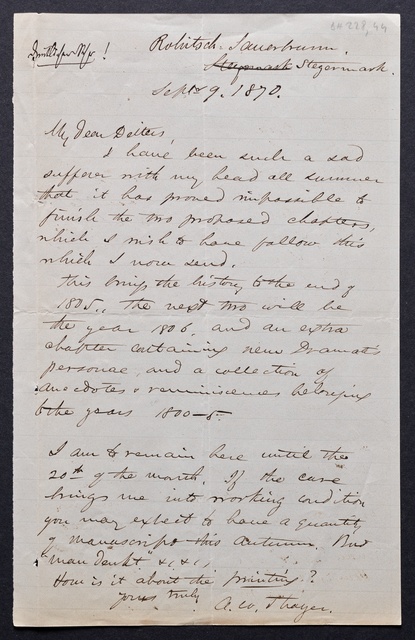 !
Rohitsch-Sauerbrunn.
Steyermark.
Sept. 9. 1870.
My dear Deiters,
I have been such a sad
sufferer with my head all summer
that it has proved impossible to
finish the two proposed chapters,
which I wish to have follow this
which I now send.
This brings the history to the end of
1805. The next two will be
the year 1806, and an extra
chapter containing new Dramatis
personae, and a collection of
anecdotes & reminiscences belonging
to the years 1800–5.
I am to remain here until the
20th of the month. If the cure
brings me into working condition
you may expect to have a quantity
of manuscript this autumn. But
"man denkt" &c &c,
How is it about the printing?
yours truly
A. W. Thayer.